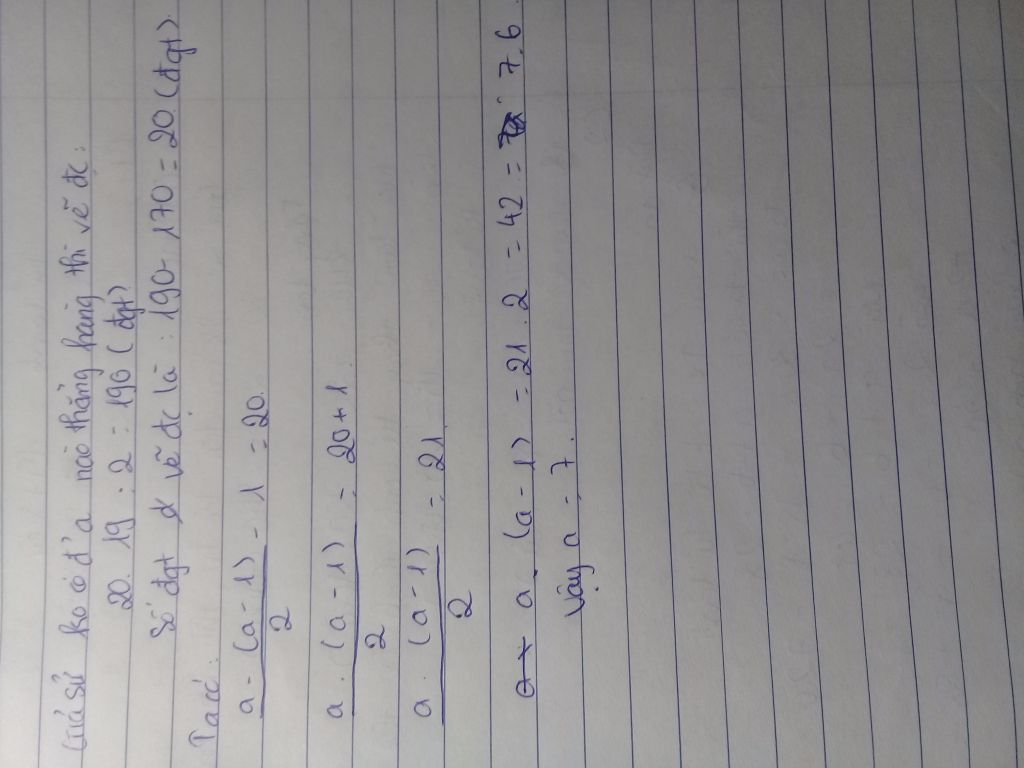 Giả sử ko có đ' a nào thẳng hàng thì vẽ đc:
20. 19 : 2 = 190 ( đgt)
Số đgt vẽ đc là : 190 - 170 = 20 (đgt)
Ta có:
a - (a - 1) / 2 - 1 = 20.
a . (a - 1) / 2 = 20 + 1
a . (a - 1) / 2 = 21.
a . (a - 1) = 21 . 2 = 42 = 7.6
Vậy a = 7.